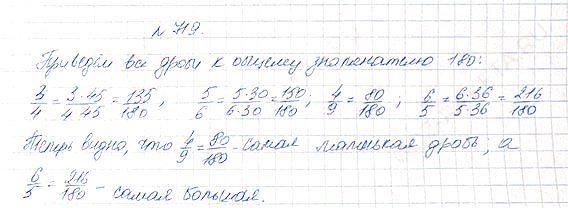 № 719.
Приведём все дроби к общему знаменателю 180:
3/4 = 3·45/4·45 = 135/180, 5/6 = 5·30/6·30 = 150/180; 4/9 = 80/180; 6/5 = 6·36/5·36 = 216/180
Теперь видно, что 4/9 = 80/180 - самая маленькая дробь, а
6/5 = 216/180 - самая большая.